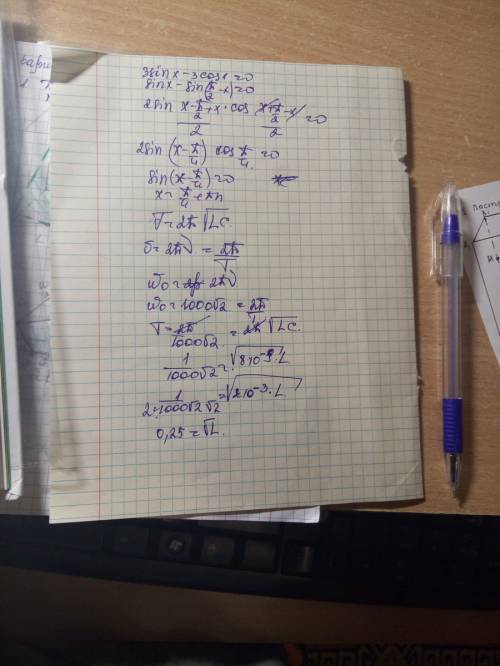 3sinx - 3cosx = 0
sinx - sin(π/2 - x) = 0
2sin (x - π/2 + x)/2 · cos (x + π/2 - x)/2 = 0
2sin (x - π/4) cos π/4 = 0
sin(x - π/4) = 0
x = π/4 + πn
T = 2π√LC
= 2πν = 2π/T
ω₀ = 2πν
ω₀ = 1000√2 = 2π/T
T = 2π/1000√2 = 2π√LC
1/1000√2 = √8·10⁻⁹·L
= √2·10⁻³·L
0,25 = √L.